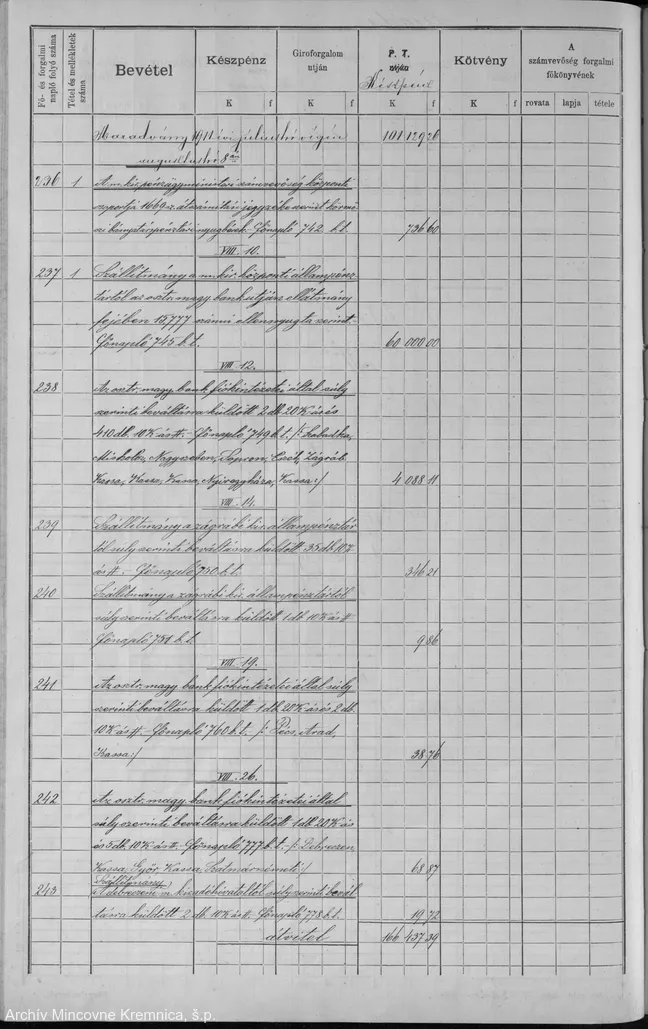 Fő- és forgalmi napló folyó száma
Tétel és mellékletek száma
Bevétel
Készpénz
Giroforgalom utján
P. T. utján
Készpénz
Kötvény
A számvevőség forgalmi főkönyvének
K f K f K f K f rovata lapja tétele
Maradvány 1911 évi julius hó végén 101 129 26
augusztus hó 8án
236 1 A m. kir. pénzügyministeri számvevőség központi
csoportja 1669 sz. átszámitási jegyzéke szerint körmö
czi bányatárpénztári nyugbérek. Főnapló 742 b. t. 736 60
VIII. 10.
237 1 Szállitmány a m. kir. központi állampénz
tártól az osztr. magy. bank utján ellátmány
fejében 15,777 számú ellennyugta szerint.
Főnapló 745 b. t. 60 000 00
VIII 12.
238 Az osztr. magy. bank fiókintézetei által súly
szerinti beváltásra küldött 2 db. 20 K ás és
410 db. 10 K ás tt. - Főnapló 749 b. t. /: Szabadka,
Miskolcz, Nagyszeben, Sopron, Zágráb
Kassa, Kassa, Nyiregyháza, Kassa :/ 4 088 11
VIII. 14.
239 Szállitmány a zágrábi kir. állampénztár
tól súly szerinti beváltásra küldött 35 db 10 K
ás tt. - Főnapló 750 b. t. 346 21
240 Szállitmány a zágrábi kir. állampénztártól
súly szerinti beváltásra küldött 1 db. 10 K ás tt
Főnapló 751 b. t. 9 86
VIII. 19.
241 Az osztr. magy. bank fiókintézetei által súly
szerinti beváltásra küldött 1 db. 20 K ás és 2 db.
10 K ás tt. - Főnapló 760 b. t. /: Pécs, Arad,
Kassa :/ 38 76
VIII. 26.
242 Az osztr. magy. bank fiókintézetei által
súly szerinti beváltásra küldött 1 db. 20 K ás
és 5 db. 10 K ás tt. - Főnapló 777 b. t. /: Debreczen,
Kassa, Győr, Kassa, Szatmárnémeti :/ 68 87
Szállitmány
243 A debreczeni súly szerinti bevál
tásra küldött 2 db. 10 K ás tt. Főnapló 778 b. t. 19 72
átvitel 166 437 39
Archív Mincovne Kremnica, š.p.